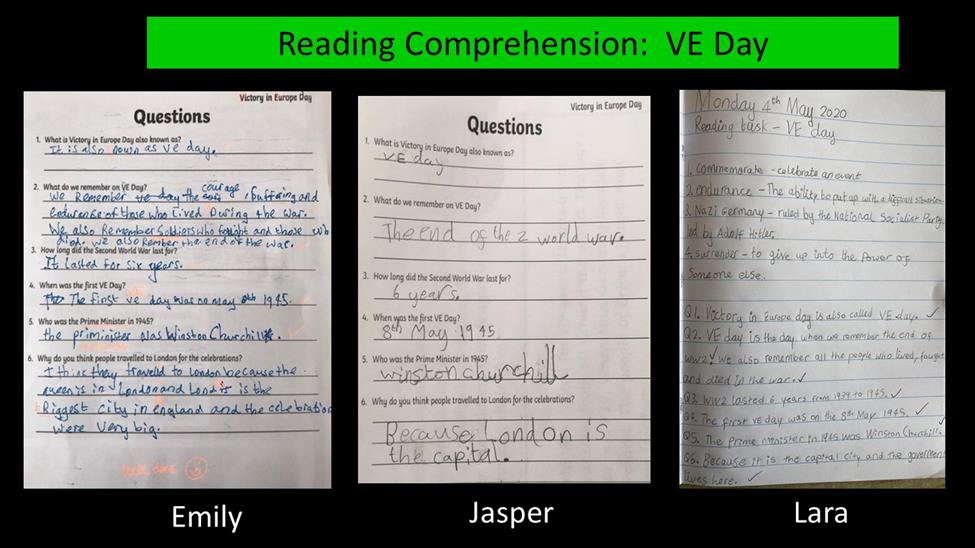 Reading Comprehension: VE Day
Victory in Europe Day
Questions
1. What is Victory in Europe Day also known as?
It is also noun as ve day.
2. What do we remember on VE Day?
courage
We Remember the day the , suffering and
endurense of those who Lived During the war.
We also Remember Soldiers who fought and those who
died. we also Rember the end of the war.
3. How long did the Second World War last for?
It lasted for six years.
4. When was the first VE Day?
The first ve day was on may 8th 1945.
5. Who was the Prime Minister in 1945?
the priminister was Winston Churchill.
6. Why do you think people travelled to London for the celebrations?
I think they traveled to london because the
queen is in London and London is the
Biggest city in england and the celebrations
were very big.
well done
Emily
Victory in Europe Day
Questions
1. What is Victory in Europe Day also known as?
VE day
2. What do we remember on VE Day?
The end of the 2 world war.
3. How long did the Second World War last for?
6 years.
4. When was the first VE Day?
8th May 1945.
5. Who was the Prime Minister in 1945?
winston churchill
6. Why do you think people travelled to London for the celebrations?
Because London is
the capital.
Jasper
Monday 4th May 2020
Reading task - VE day
1. Commemorate - celebrate an event
2. endurance - The ability to put up with a difficult situation
3. Nazi Germany - ruled by the National Socialist Party
led by Adolf Hitler.
4. surrender - to give up into the power of
someone else.
Q1. Victory in Europe day is also called VE day.
Q2. VE day is the day when we remember the end of
WW2. We also remember all the people who lived, fought
and died in the war.
Q3. WW2 lasted 6 years from 1939 to 1945.
Q4. The first VE day was on the 8th May 1945.
Q5. The Prime Minister in 1945 was Winston Churchill.
Q6. Because it is the capital city and the government
lives here.
Lara